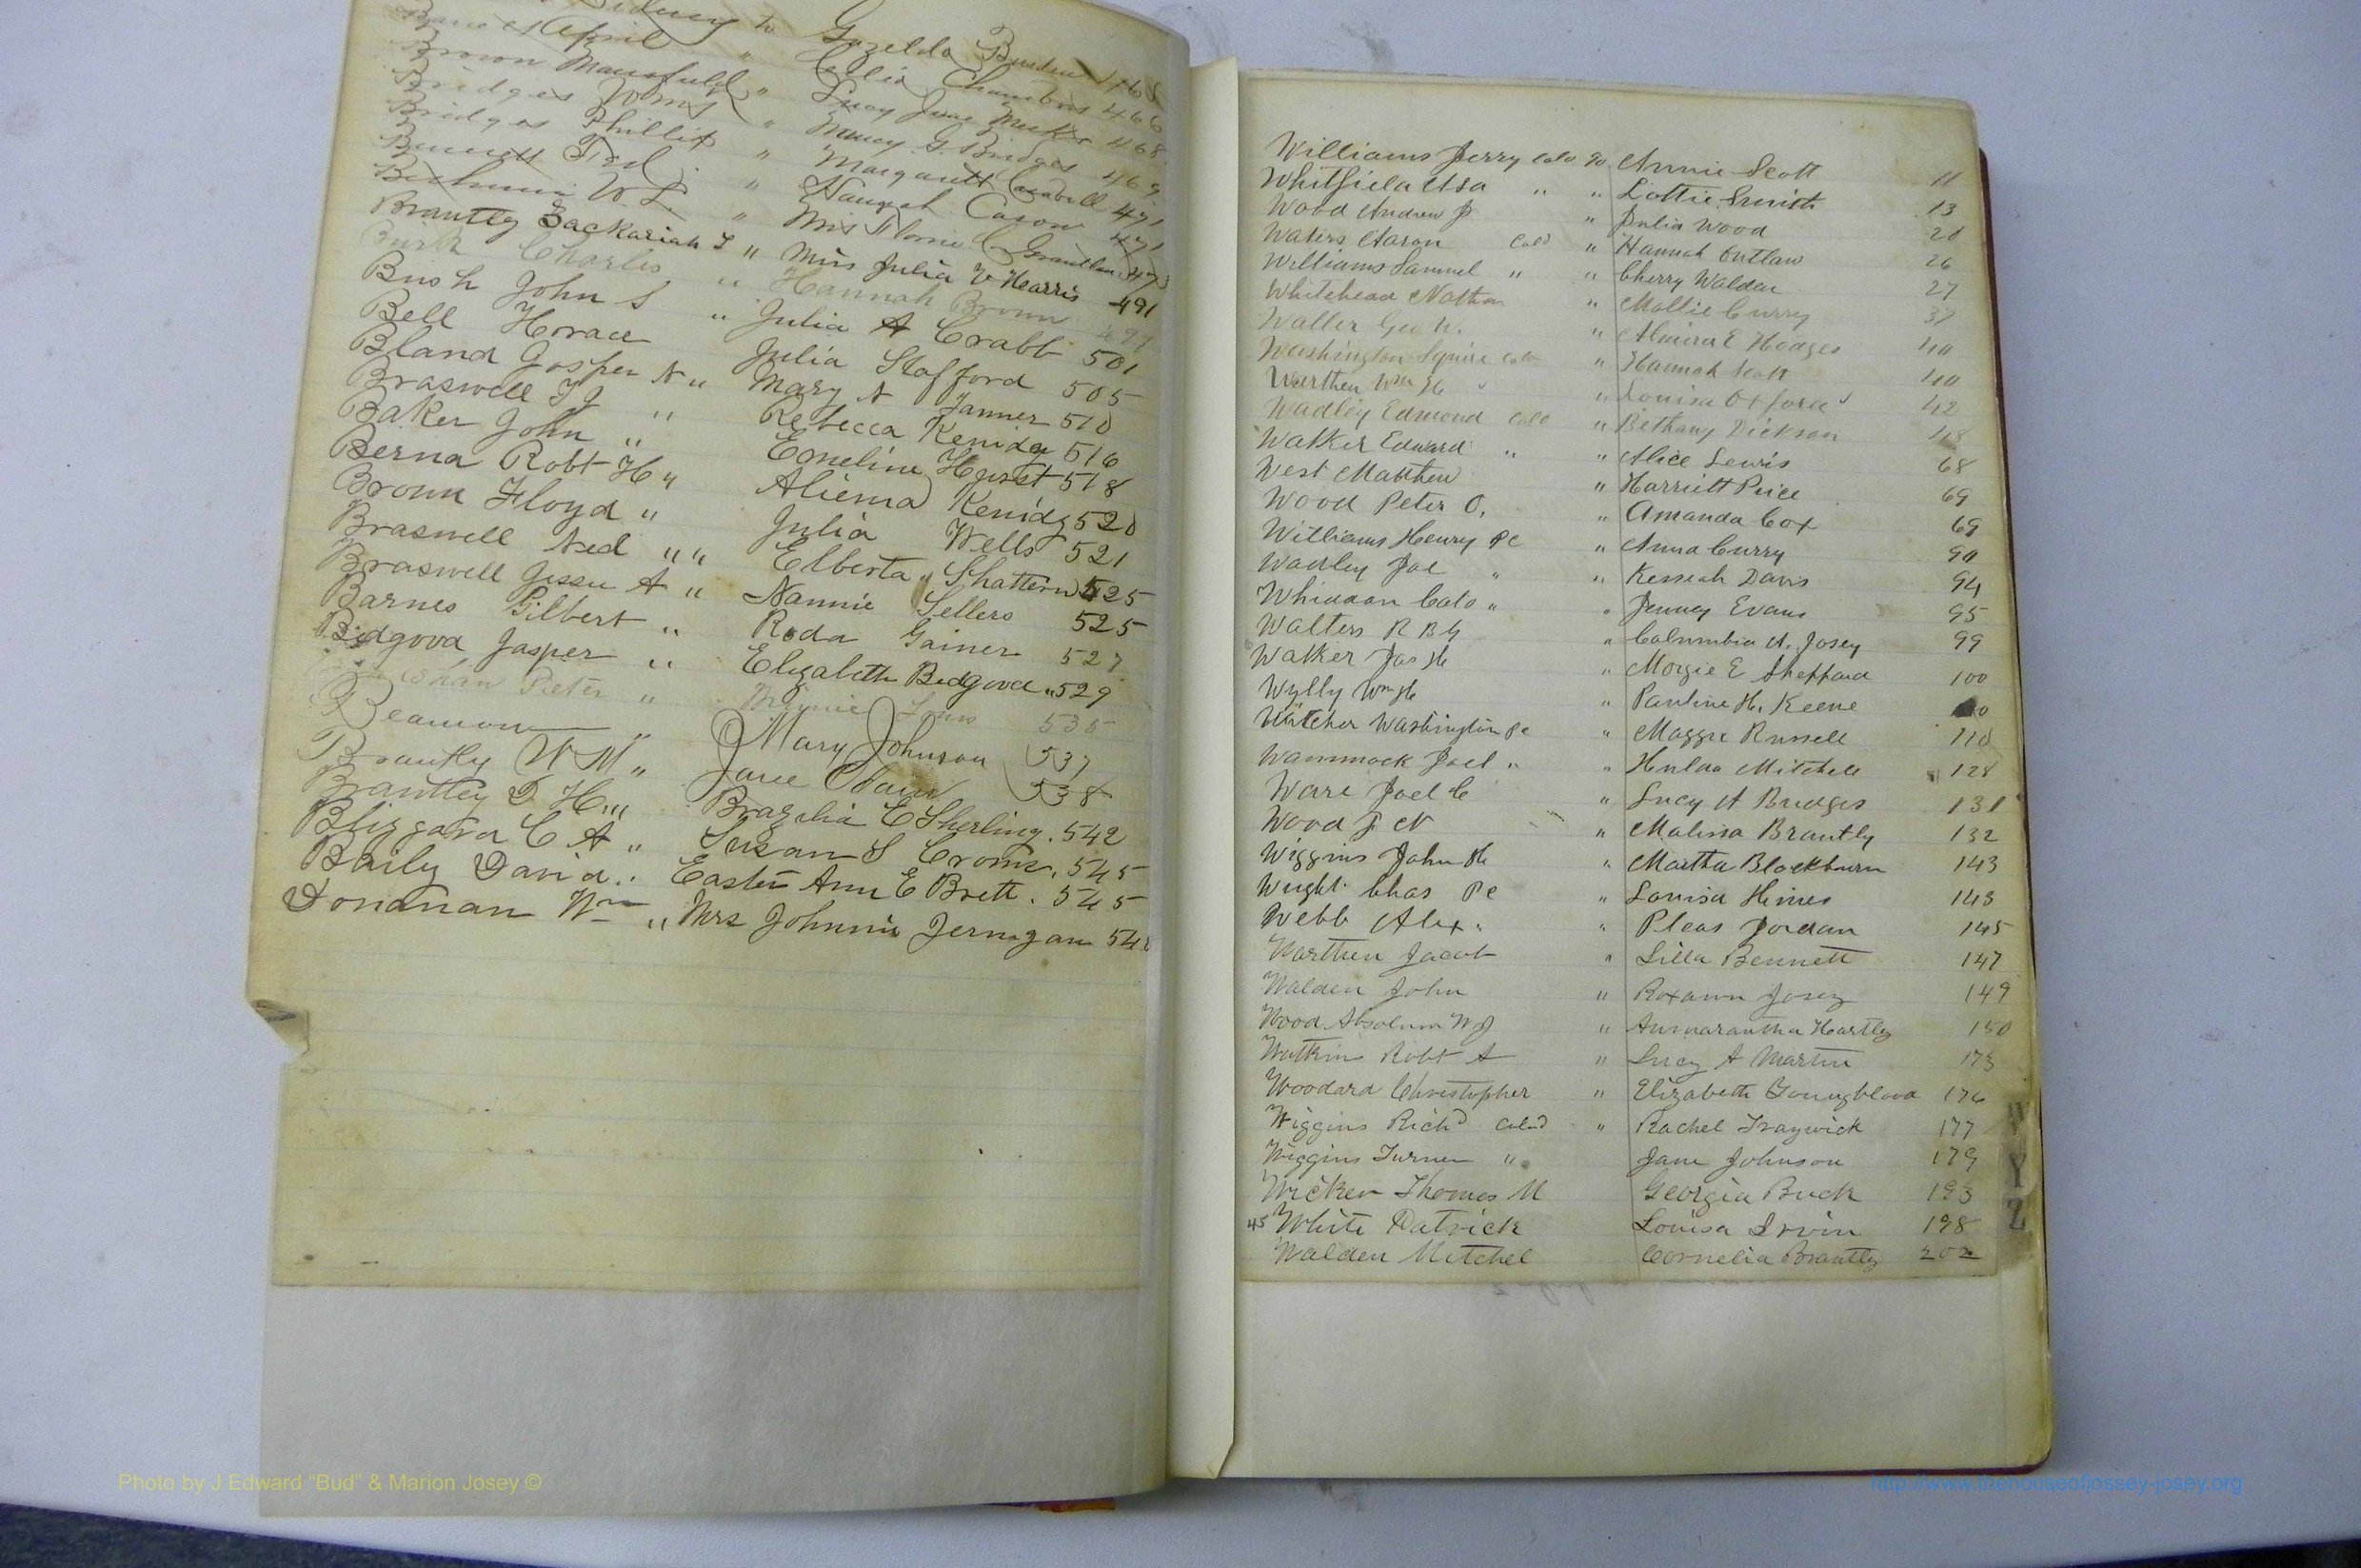 Sidney to Gozelda Burden 465
April " Celia Chambers 466
Brown Mansfield " Lucy Jane 468
Bridges Wm S " Nancy G. Bridges 469
Bridges Phillip " Margarett 471
Bennett Fred " Hannah Cason 471
W. L. " Miss Florrie C Grantlan 473
Brantley Zackariah T " Miss Julia V Harris 491
Burk Charles " Hannah Brown
Bush John S " Julia A Crabb 501
Bell Horace Julia Stafford 505
Bland Gosper N " Mary N Tanner 510
Braswell T J " Rebecca Kenidy 516
Baker John " Emeline Hurst 518
Berna Robt H " Aliema Kenidy 520
Brown Floyd " Julia Wells 521
Braswell Ned " " Elberta " 525
Braswell Jessee A " Nannie Sellers 525
Barnes Gilbert " Roda Gainer 527
Bedgood Jasper " Elizabeth Bedgood " 529
Peter " 535
Beamon " Mary Johnson 537
Brantly W M " Jane 538
Brantley D H " Brazelia E Sherling . 542
Blizzard C A " Susan S Croms . 545
Baily David . Easter Ann E Brett . 545
Donanan Wm " Mrs Johnnie Jernigan 54
Williams Jerry Cold To Annie Scott 11
Whitfield Asa " " Lottie Smith 13
Wood Andrew J " Julia Wood 20
Waters Aaron Cold " Hannah Outlaw 26
Williams Samuel " " Cherry Walden 27
Whitehead Nathan " Mollie Curry 37
Waller Geo W. " Almira E Hodges 40
Washington Squire Cold " Hannah Scott 40
Warthen Wm H " Louisa 42
Wadley Edmond Cold " Bethany Dickson 48
Walker Edward " " Alice Lewis 68
West Matthew " Harriett Price 69
Wood Peter O. " Amanda Cox 69
Williams Henry PC " Anna Curry 90
Wadley Joe " " Kessiah Davis 94
Whiddon Cato " " Jenney Evans 95
Walters R B G " Columbia A. Josey 99
Walker Jas H " Morgie E Sheppard 100
Wylly Wm H " Pauline H. Keene
Washington PC " Maggie Russell 118
Wammock Joel " " Hulda Mitchell 128
Ware Joel C " Lucy A Bridges 131
Wood J N " Malissa Brantly 132
Wiggins John H " Martha Blackburn 143
Wright Chas PC " Louisa Hines 143
Webb Alex " " Pleas Jordan 145
Warthen Jacob " Lilla Bennett 147
Walden John " Roxann Josey 149
Wood Absolum W J " Anmarantha Hartley 150
Watkins Robt A " Lucy A Martin 173
Woodard Christopher " Elizabeth Youngblood 176
Wiggins Richd Cold " Rachel Traywick 177
Wiggins Turner " Jane Johnson 179
Wicker Thomas M Georgia Buck 193
45 White Patrick Louisa Irvin 198
Walden Mitchel Cornelia Brantly 202
W
Y
Z
Photo by J Edward “Bud” & Marion Josey ©
http://www.thehouseofjossey-josey.org